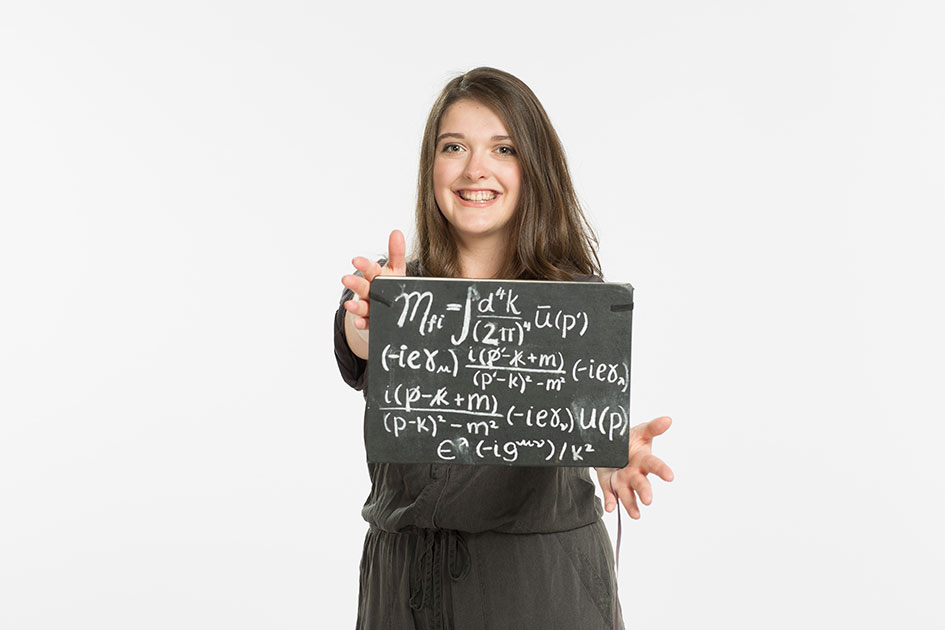 𝓜fi = ∫ d⁴k/(2π)⁴ ū(p′)
(-ieγμ) i(p̸′-k̸+m)/((p′-k)²-m²) (-ieγλ)
i(p̸-k̸+m)/((p-k)²-m²) (-ieγν) u(p)
ϵ^λ (-ig^μν)/k²